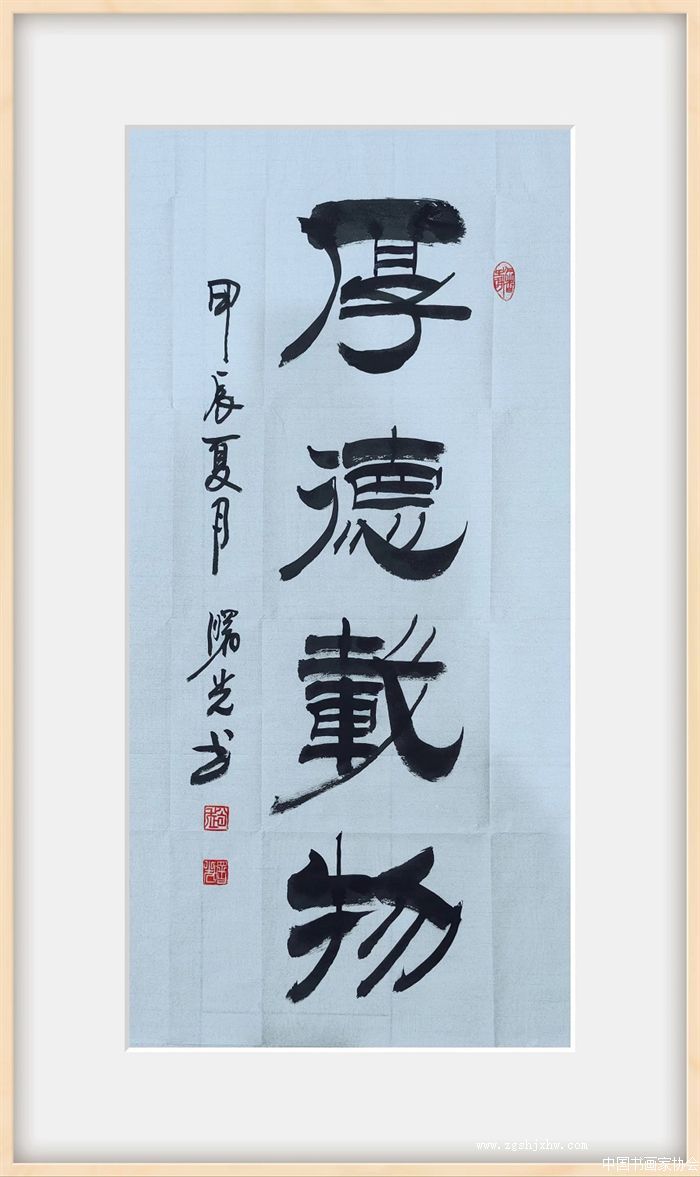 厚德載物
甲辰夏月 曙光书
www.zgshjxhw.com
中国书画家协会